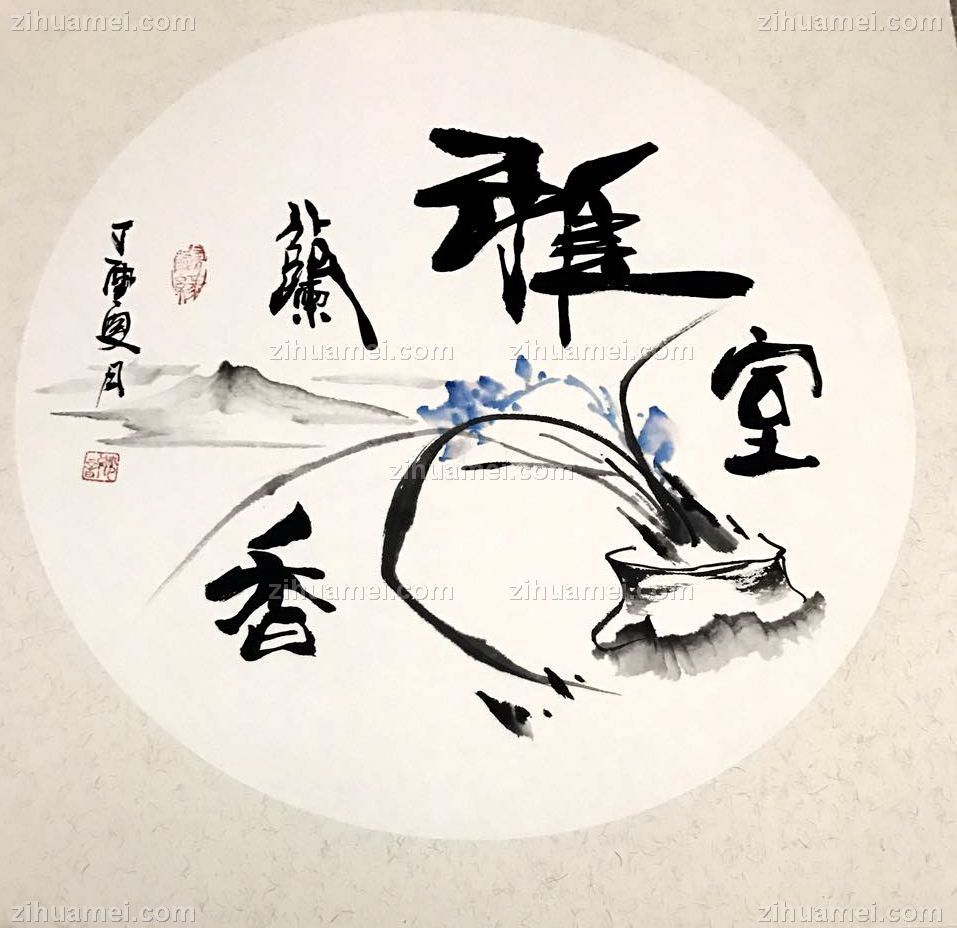 zihuamei.com
zihuamei.com
zihuamei.com
雅
室
蘭
香
丁酉夏月
zihuamei.com
zihuamei.com
zihuamei.com
zihuamei.com
zihuamei.com
zihuamei.com
zihuamei.com
zihuamei.com